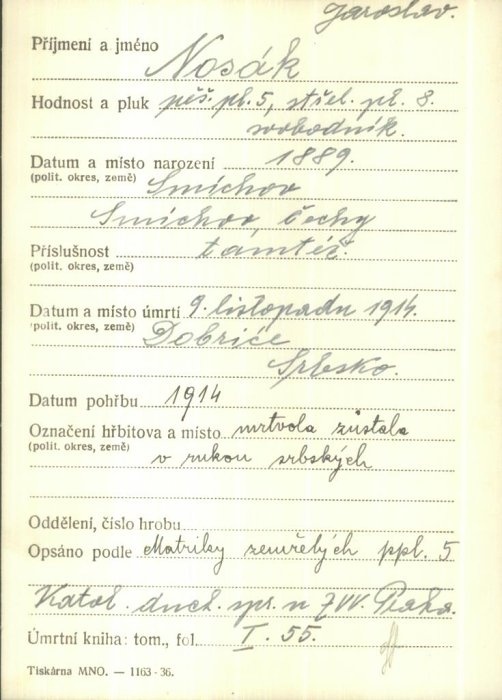 Jaroslav.
Příjmení a jméno Nosák
Hodnost a pluk pěš. pl. 5, střel. pl. 8.
svobodník.
Datum a místo narození 1889.
(polit. okres, země) Smíchov
Smíchov Čechy
Příslušnost tamtéž.
(polit. okres, země)
Datum a místo úmrtí 9. listopadu 1914.
(polit. okres, země) Dobriće
Srbsko.
Datum pohřbu 1914
Označení hřbitova a místo mrtvola zůstala
(polit. okres, země) v rukou srbských
Oddělení, číslo hrobu
Opsáno podle Matriky zemřelých ppl. 5
Katol. duch. spr. u ZVV. Praha.
Úmrtní kniha: tom., fol. I. 55.
Tiskárna MNO. — 1163 - 36.